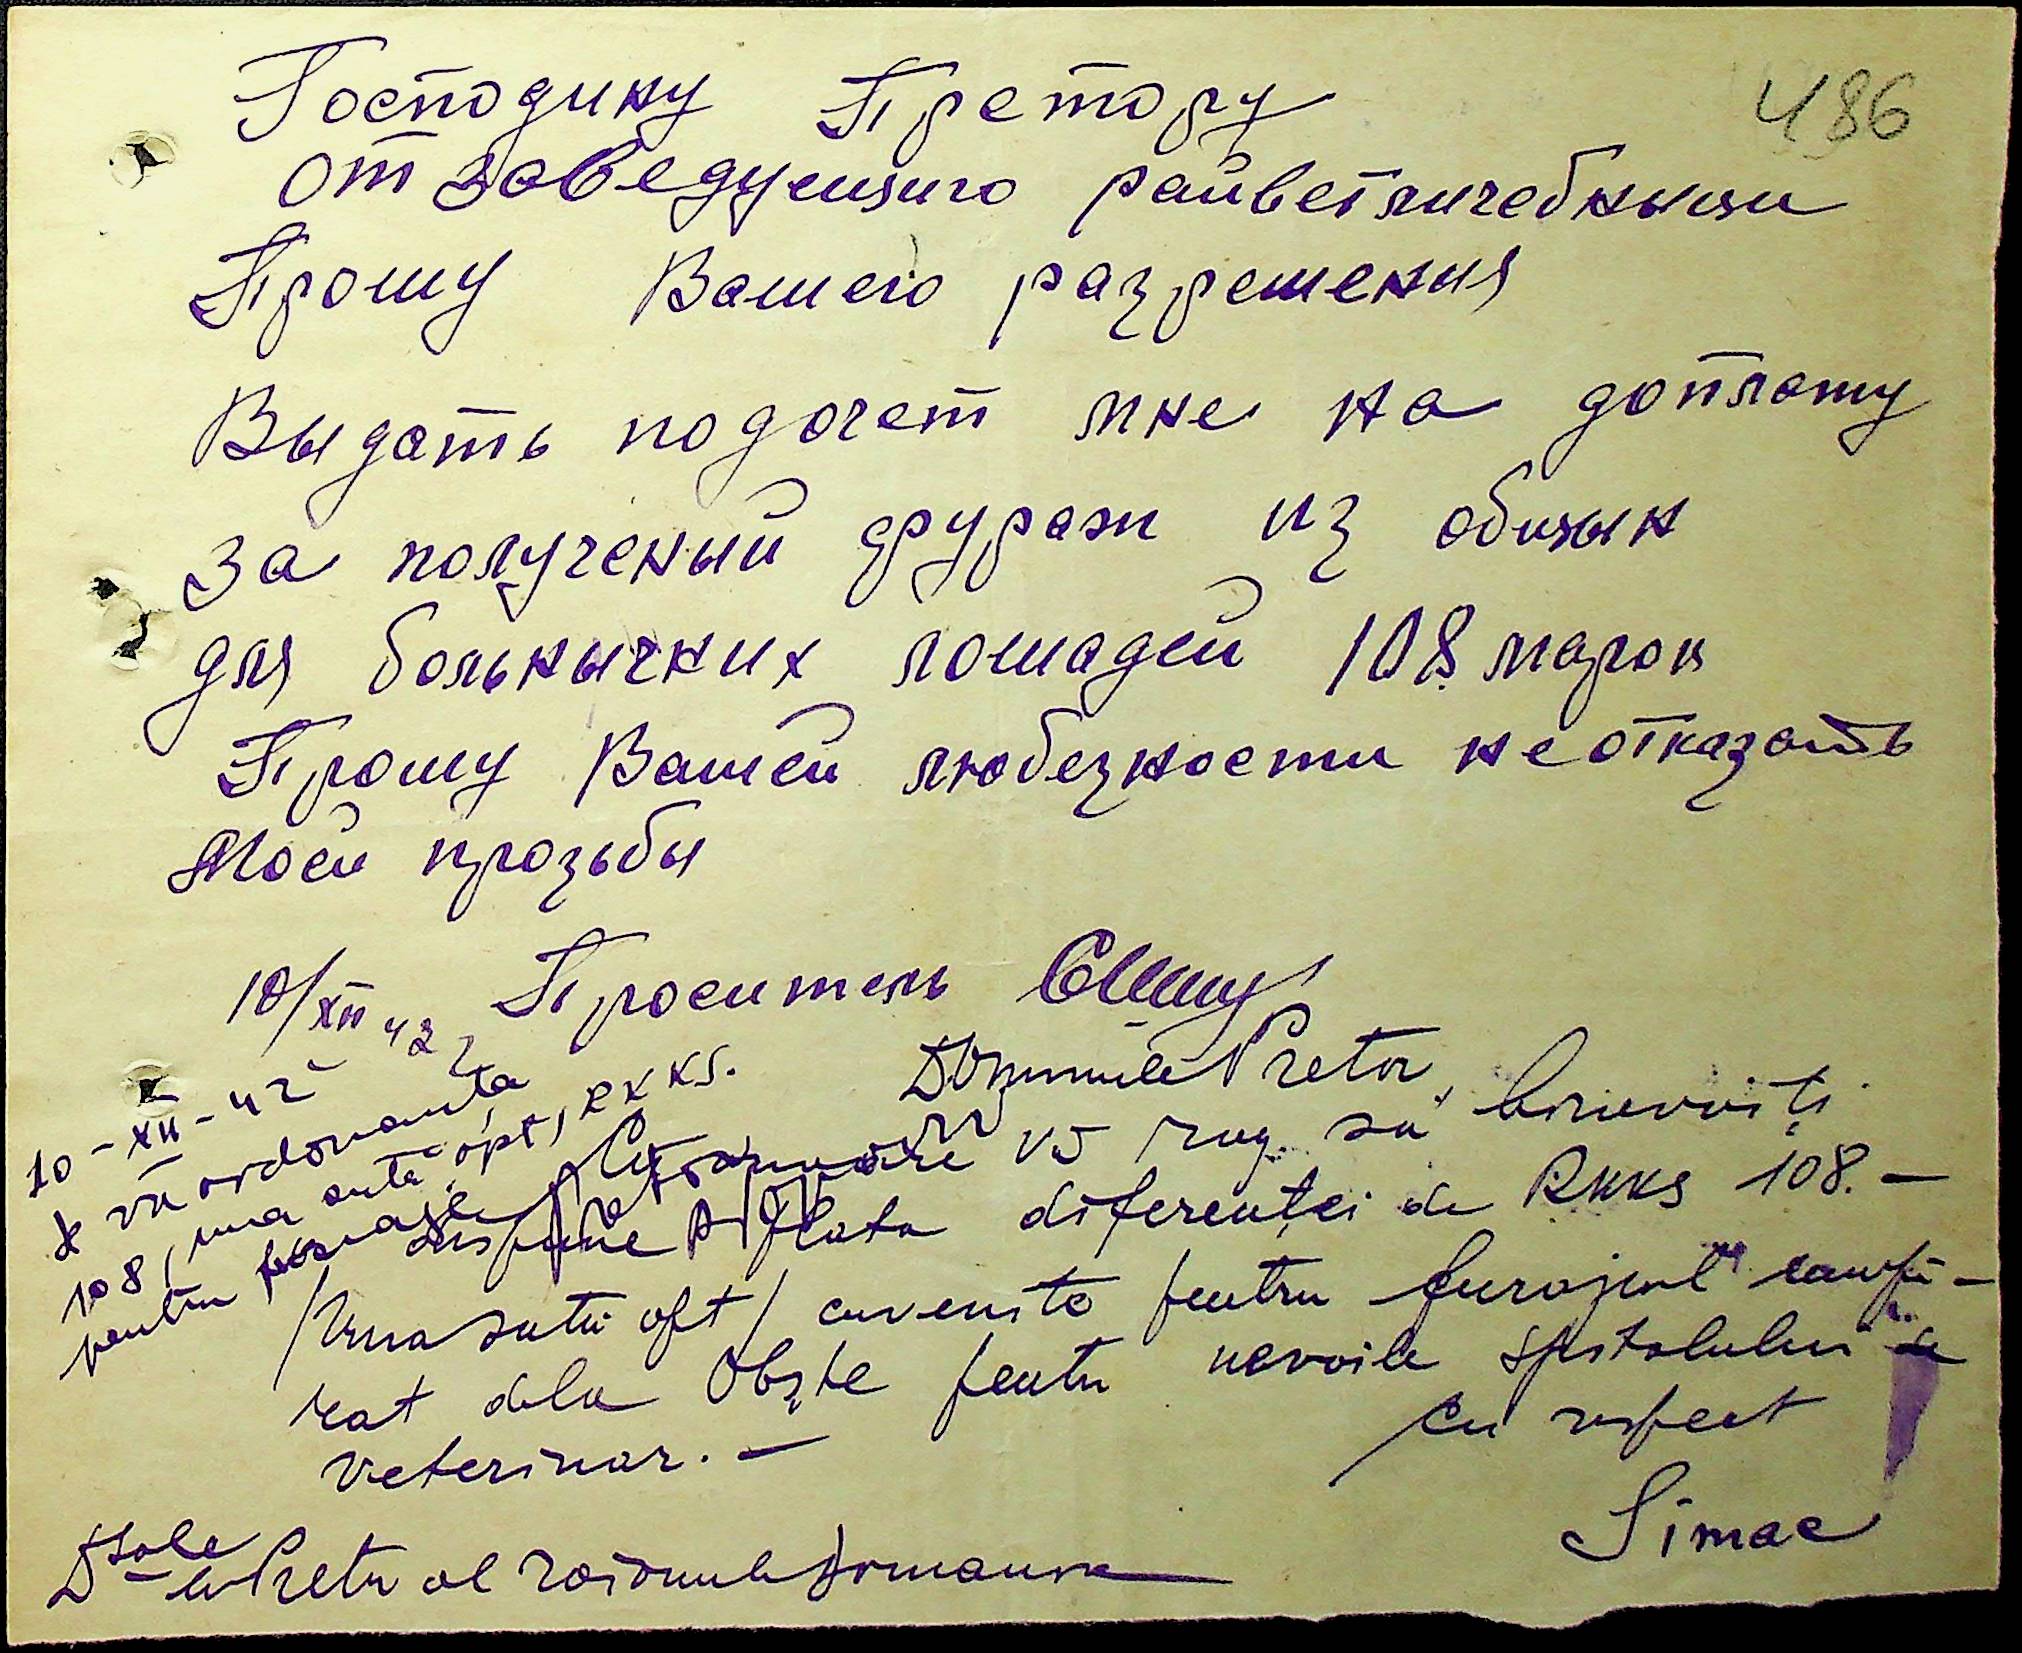 486
Господину Претору
от заведующиго райветличебныци
Прошу Вашего разрешения
Выдать подочет мне на доплату
за полученый фураж из общын
для больнычних лошадей 108 марок
Прошу Вашей любезности не отказать
моей прозьбы
10/XII 42 Проситель
Domnule Pretor,
Cu onoare vă rog să binevoiți
dispune plata diferenței de RKKS 108.—
/Una sută opt/ cuvenite pentru furajul cumpă-
rat dela Obște pentru nevoile spitalului
veterinar.—
Cu respect
Simac
D-sale
D-lui Pretor al raionului
10-XII-42
Se va ordonanța
108, una sută opt, RKKS.
pentru furaje